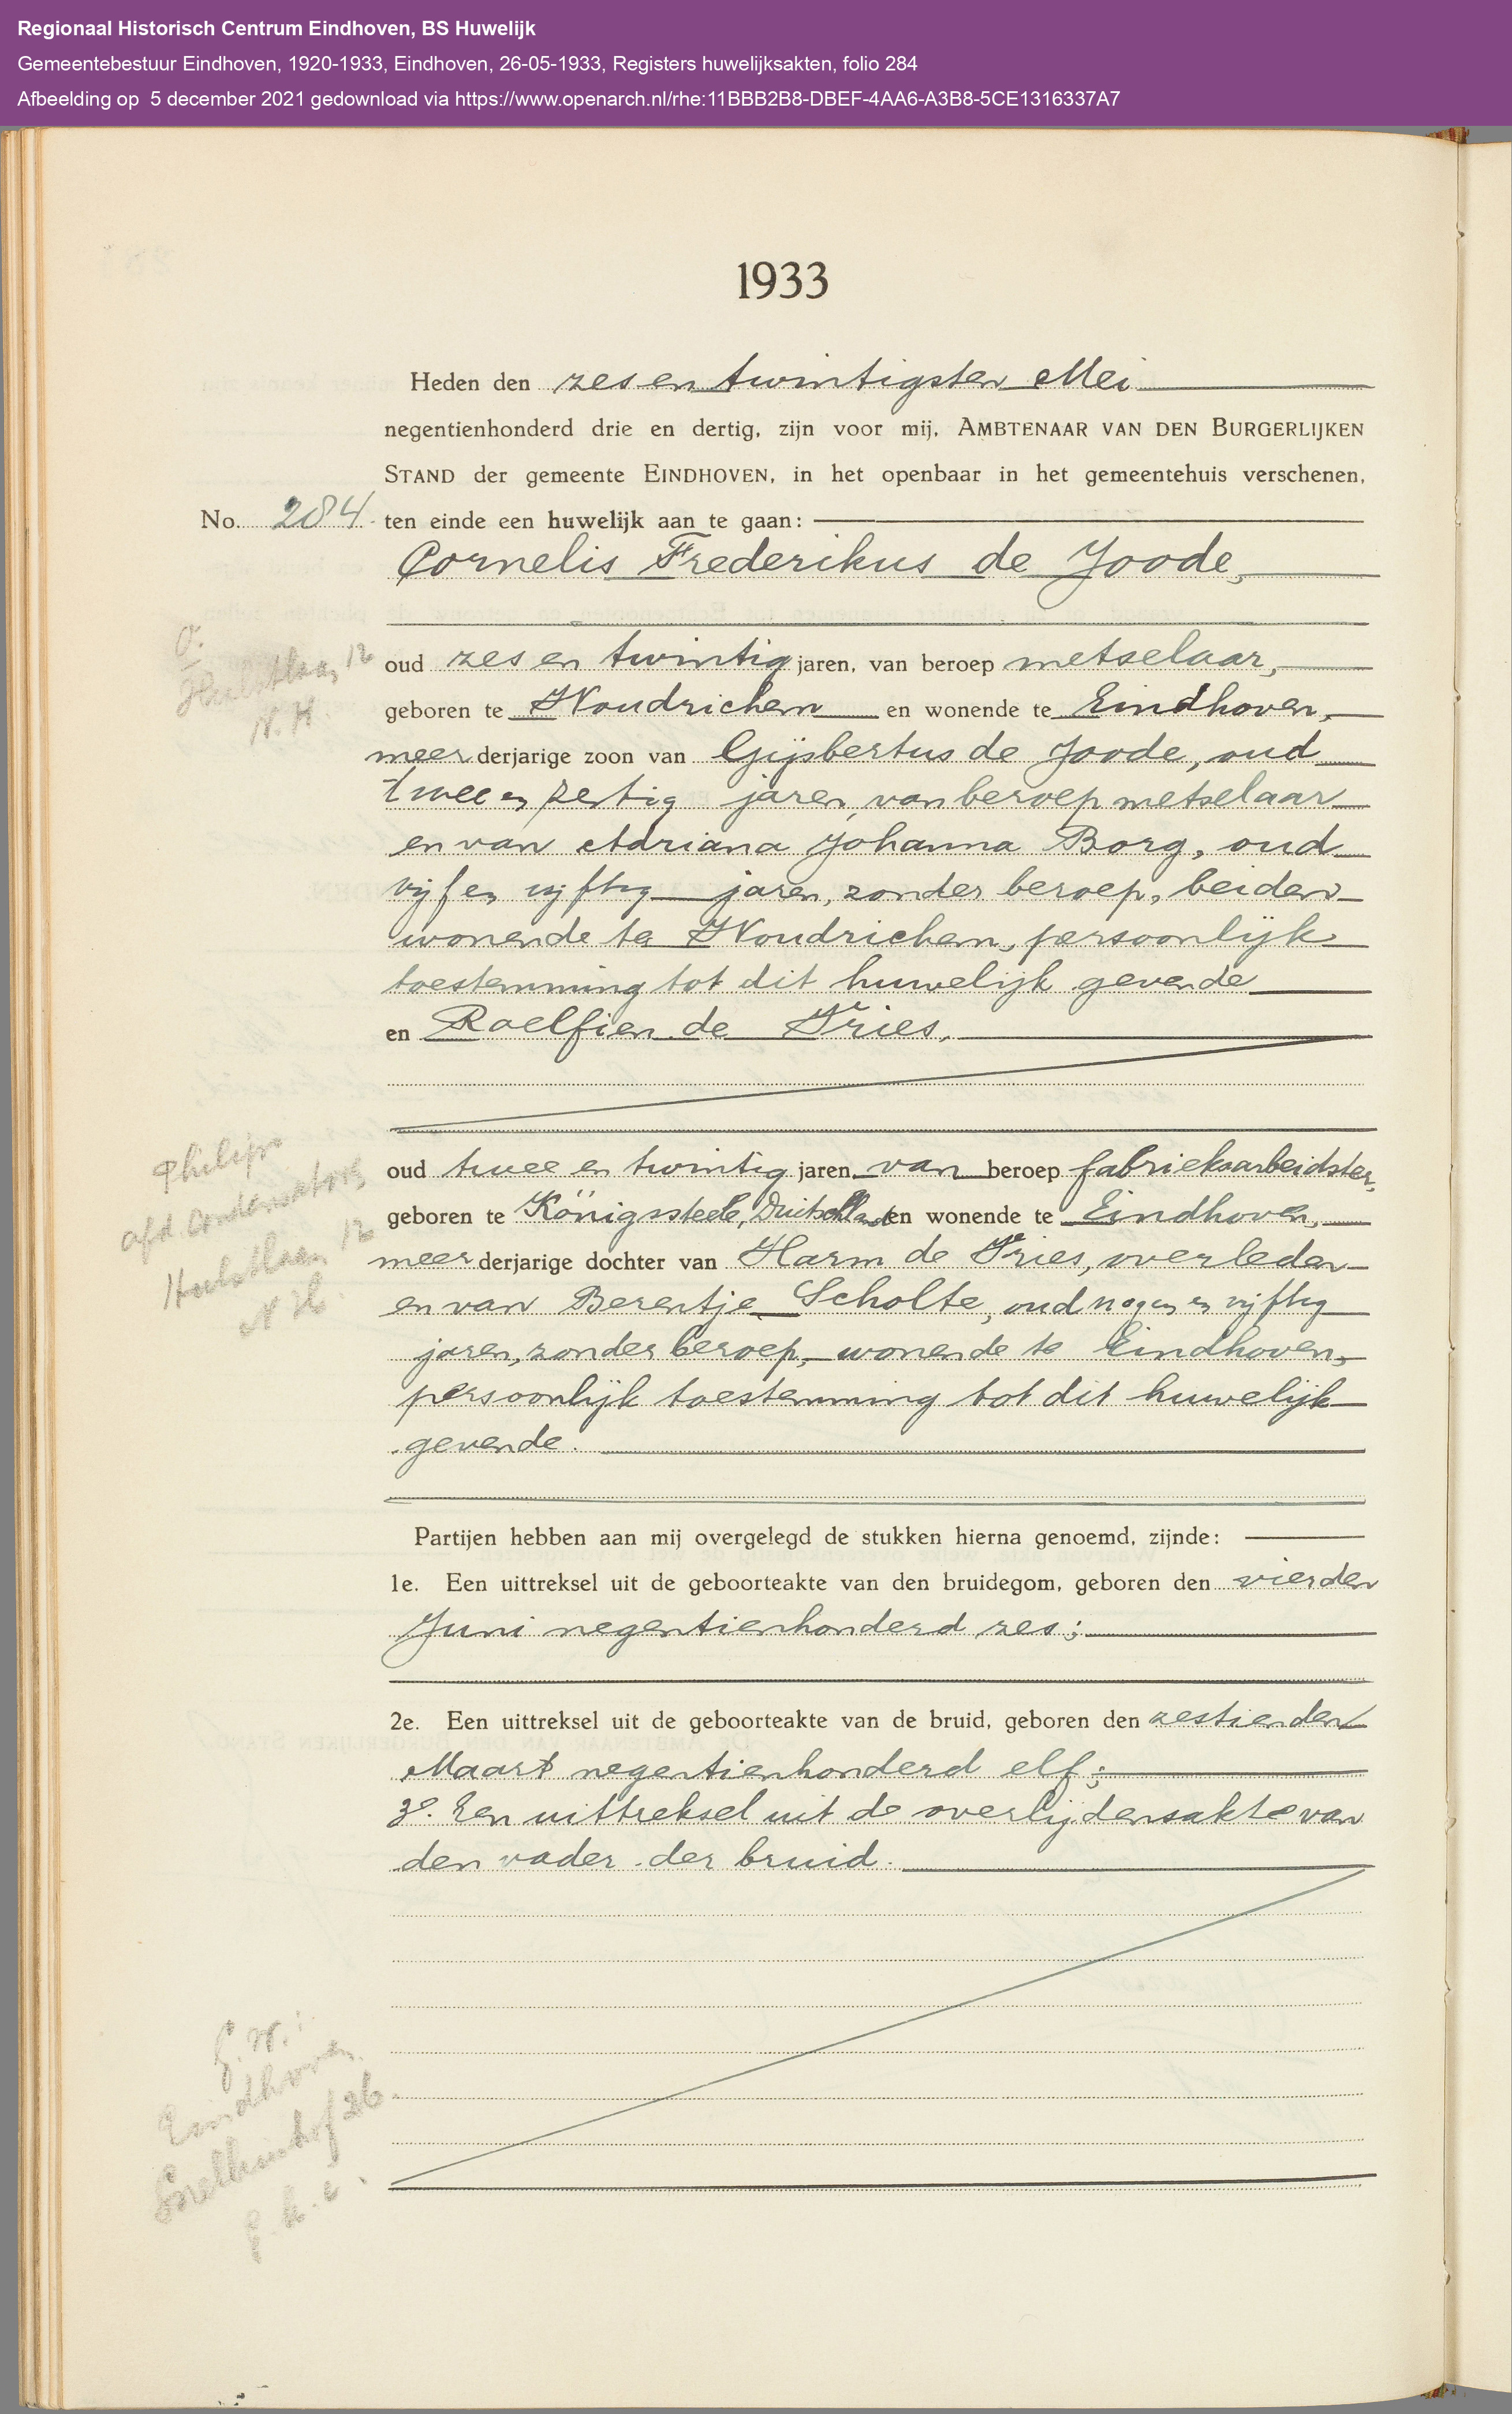 Regionaal Historisch Centrum Eindhoven, BS Huwelijk
Gemeentebestuur Eindhoven, 1920-1933, Eindhoven, 26-05-1933, Registers huwelijksakten, folio 284
Afbeelding op 5 december 2021 gedownload via https://www.openarch.nl/rhe:11BBB2B8-DBEF-4AA6-A3B8-5CE1316337A7
1933
Heden den zes en twintigsten Mei
negentienhonderd drie en dertig, zijn voor mij, AMBTENAAR VAN DEN BURGERLIJKEN
STAND der gemeente EINDHOVEN, in het openbaar in het gemeentehuis verschenen,
No. 284 ten einde een huwelijk aan te gaan:
Cornelis Frederikus de Joode,
oud zes en twintig jaren, van beroep metselaar,
12
N.H.
geboren te Woudrichem en wonende te Eindhoven,
meerderjarige zoon van Gijsbertus de Joode, oud
twee en zestig jaren, van beroep metselaar
en van Adriana Johanna Borg, oud
vijf en vijftig jaren, zonder beroep, beiden
wonende te Woudrichem, persoonlijk
toestemming tot dit huwelijk gevende
en Roelfien de Vries,
Philips
afd. Condensators
12
N.H.
oud twee en twintig jaren van beroep fabrieksarbeidster,
geboren te Königssteele, Duitschland en wonende te Eindhoven,
meerderjarige dochter van Harm de Vries, overleden
en van Berentje Scholte, oud negen en vijftig
jaren, zonder beroep, wonende te Eindhoven,
persoonlijk toestemming tot dit huwelijk
gevende.
Partijen hebben aan mij overgelegd de stukken hierna genoemd, zijnde:
1e. Een uittreksel uit de geboorteakte van den bruidegom, geboren den vierden
Juni negentienhonderd zes;
2e. Een uittreksel uit de geboorteakte van de bruid, geboren den zestienden
Maart negentienhonderd elf;
3e. Een uittreksel uit de overlijdensakte van
den vader der bruid.
Eindhoven
26